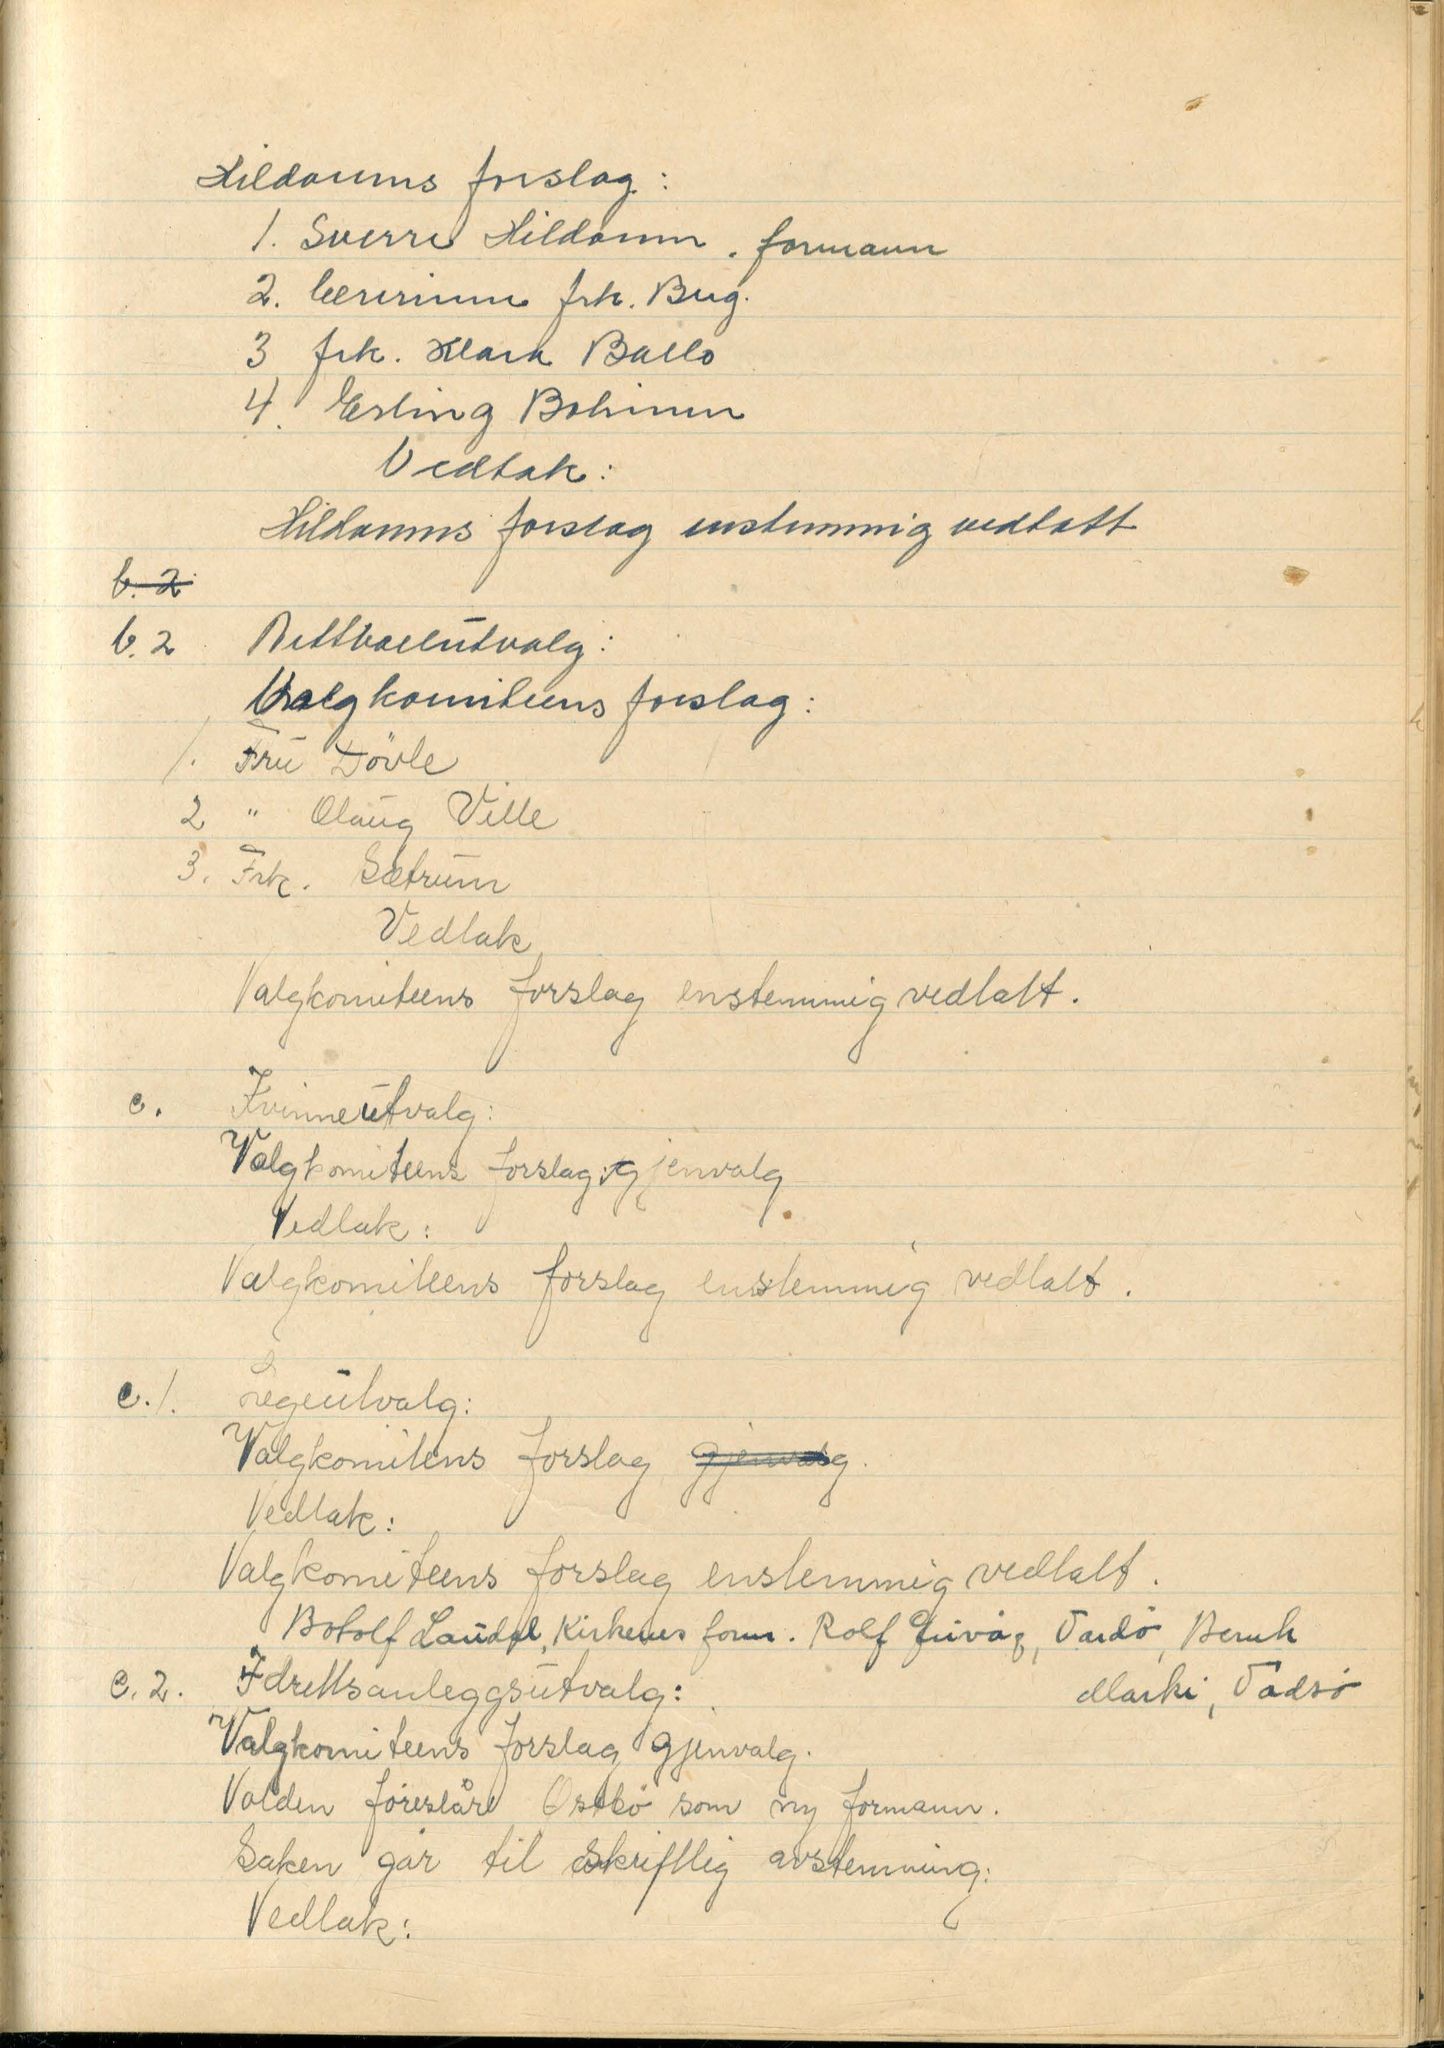 Hildonens forslag:
1. Sverre Hildonen. formann
2. frk. Bug.
3 frk. Klara Ballo
4. Erling Bohinen
Vedtak:
Hildonens forslag enstemmig vedtatt
b. 2
b. 2 Nettballutvalg:
Valgkomiteens forslag:
1. Fru Dövle
2 " Olaug Ville
3. Frk. Sætrum
Vedtak
Valgkomiteens forslag enstemmig vedtatt.
c. Kvinneutvalg:
Valgkomiteens forslag: gjenvalg
Vedtak:
Valgkomiteens forslag enstemmig vedtatt.
c. 1. Legeutvalg:
Valgkomitens forslag gjenvalg.
Vedtak:
Valgkomiteens forslag enstemmig vedtatt.
Botolf Laudal, Kirkenes form. Rolf Guvåg, Vardö, Bernh
Marki, Vadsö
c. 2. Idrettsanleggsutvalg:
Valgkomiteens forslag gjenvalg.
Valden föreslåre Ostbö som ny formann.
Saken går til skriftlig avstemning:
Vedtak: